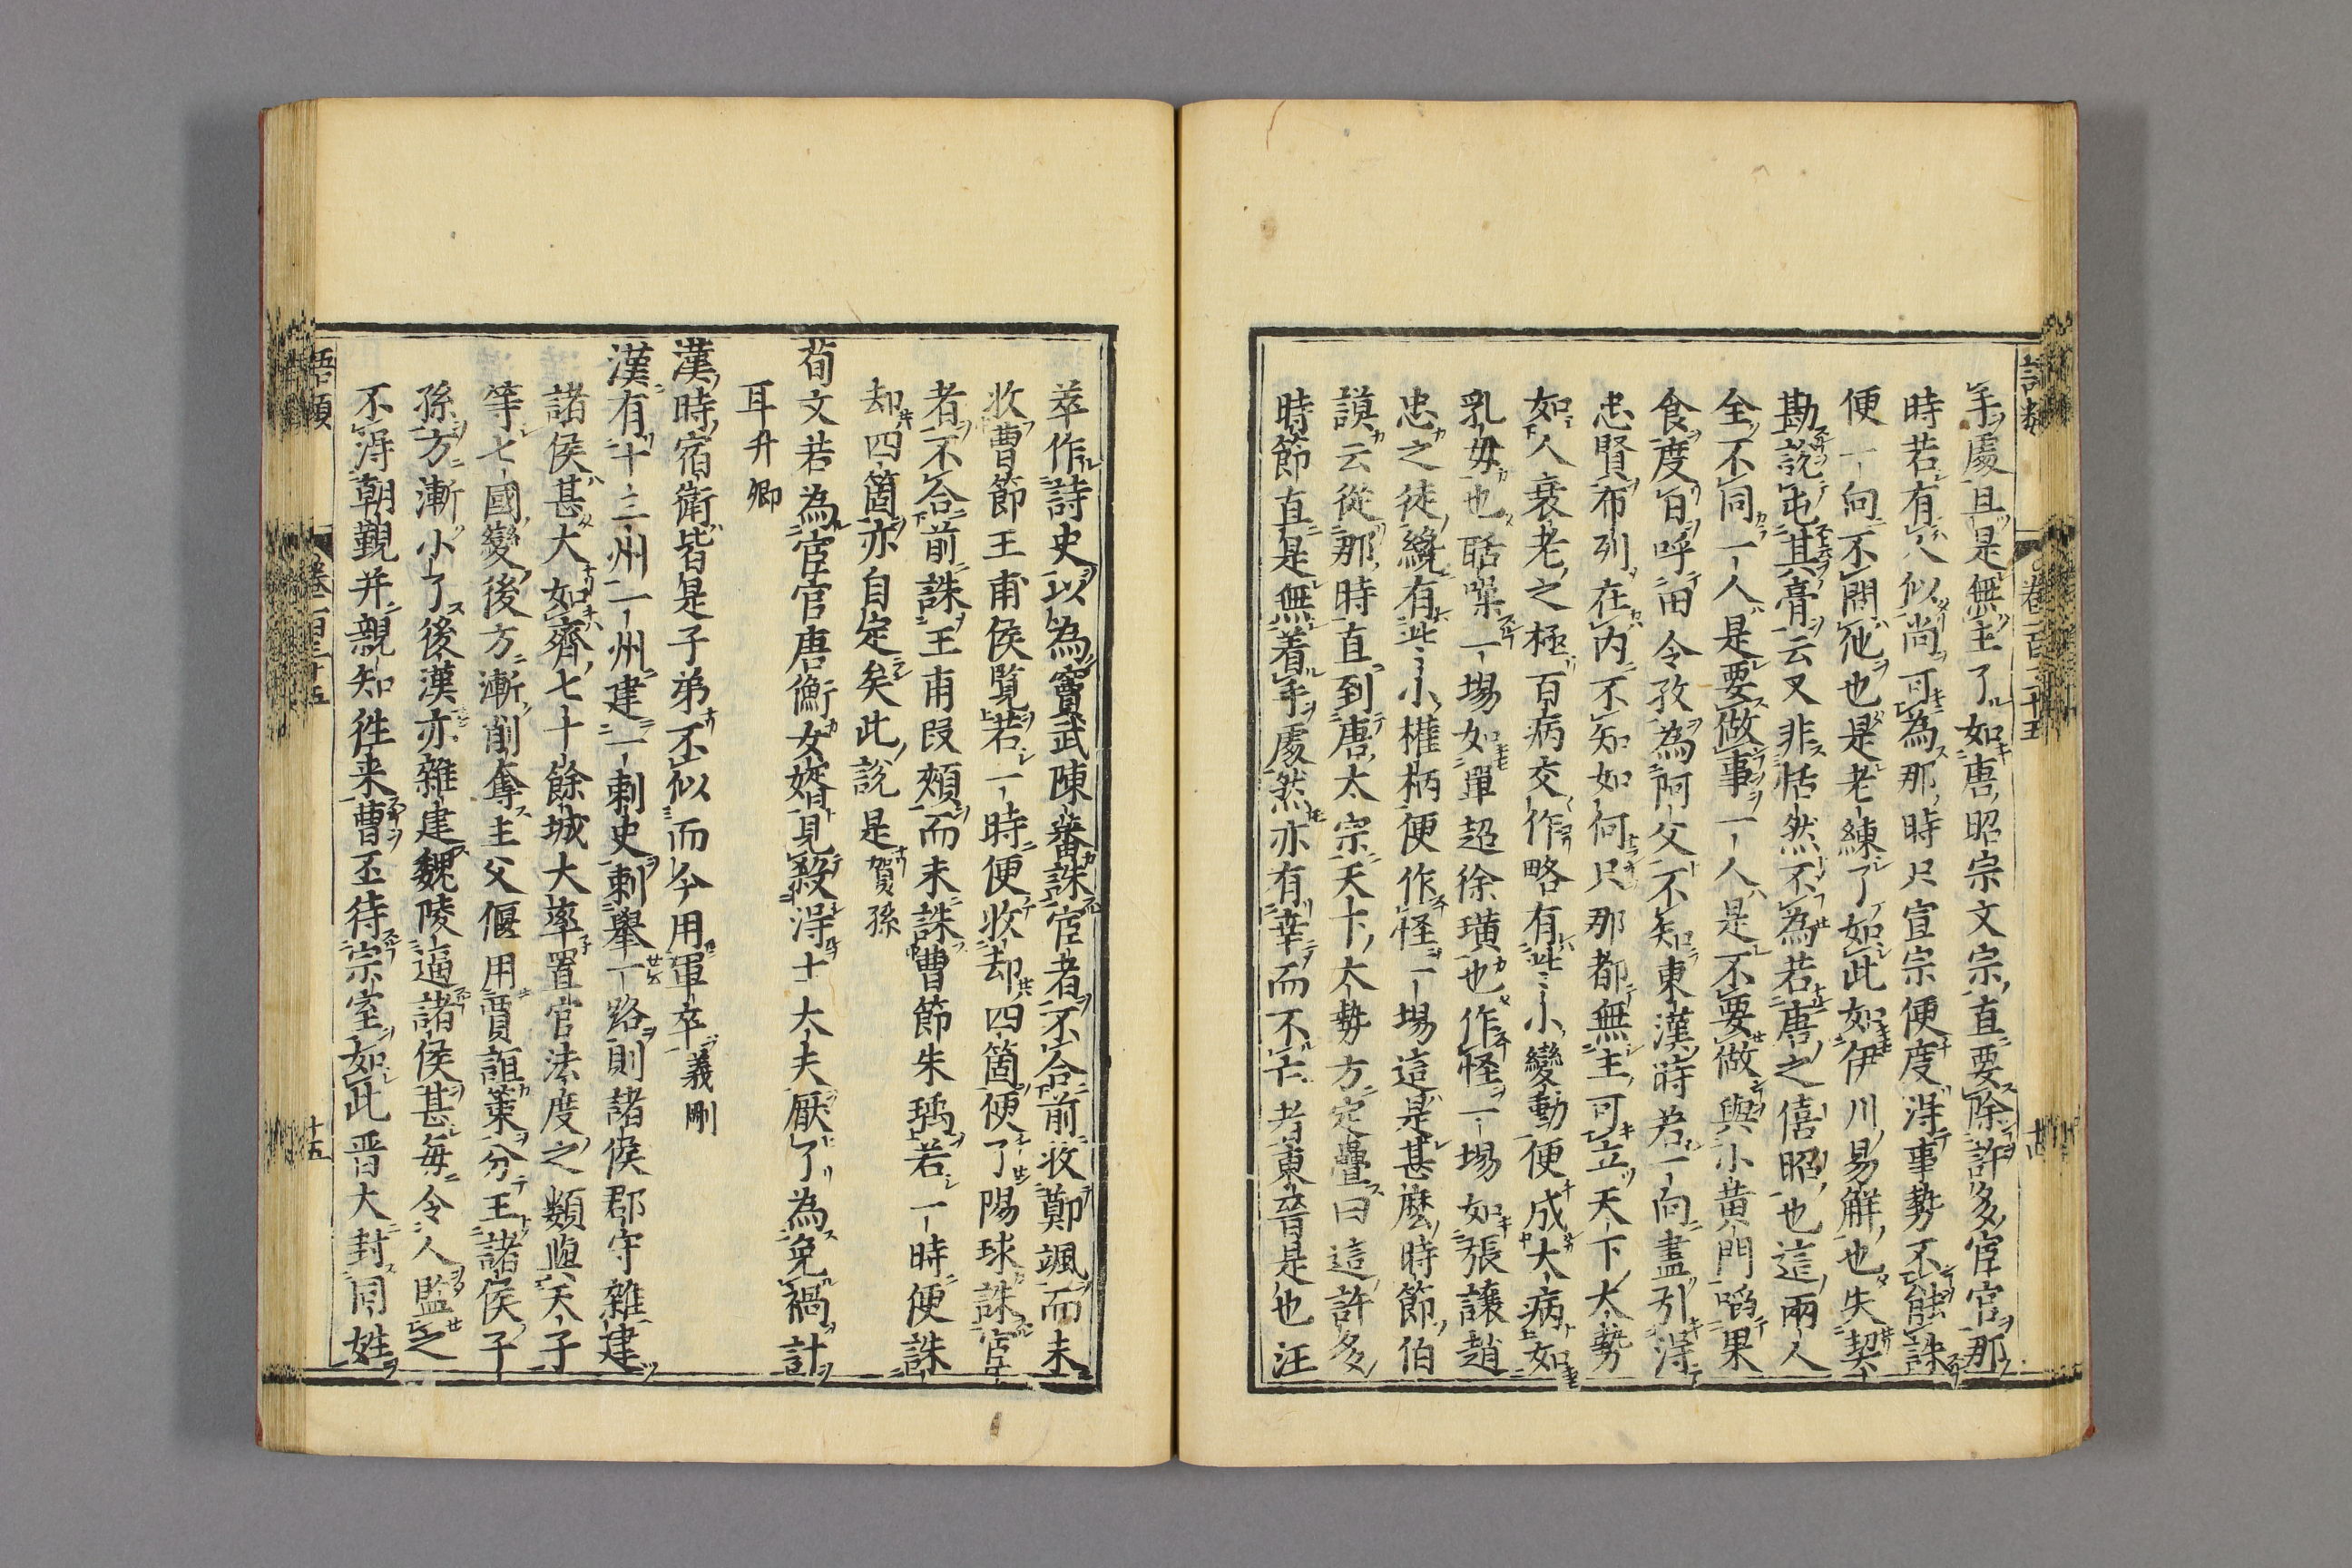 語類 卷一百三十五 十四
手處且是無主了如唐昭宗文宗直要除許多宦官那
時若有人似尚可為那時只宣宗便度得事勢不能誅
便一向不問他也是老練了如此如伊川易解也失契
勘說屯其膏云又非恬然不為若唐之僖昭也這兩人
全不同一人是要做事一人是不要做與小黄門啗果
食度日呼田令孜為阿父不知東漢時若一向盡引得
忠賢布列在内不知如何只那都無主可立天下大勢
如人衰老之極百病交作略有些〻小變動便成大病如
乳母也聒噪一場如單超徐璜也作怪一場如張讓趙
忠之徒纔有些〻小權柄便作怪一場這是甚麼時節伯
謨云從那時直到唐太宗天下大勢方定疊曰這許多
時節直是無着手處然亦有幸而不亡者東晉是也汪
萃作詩史以為竇武陳蕃誅宦者不合前收鄭颯而未
收曹節王甫侯覽若一時便收却四箇便了陽球誅宦
者不合前誅王甫段熲而未誅曹節朱瑀若一時便誅
却四箇亦自定矣此說是賀孫
荀文若為宦官唐衡女婿見殺得士大夫厭了為免禍計
耳升卿
漢時宿衛皆是子弟不似而今用軍卒義剛
漢有十三州一州建一刺史刺舉一路則諸侯郡守雜建
諸侯甚大如齊七十餘城大率置官法度之類與天子
等七國變後方漸削奪主父偃用賈誼策分王諸侯子
孫方漸小了後漢亦雜建魏陵逼諸侯甚每令人監之
不得朝覲并親知徃来曹丕待宗室如此晋大封同姓
語類 卷一百三十五 十五